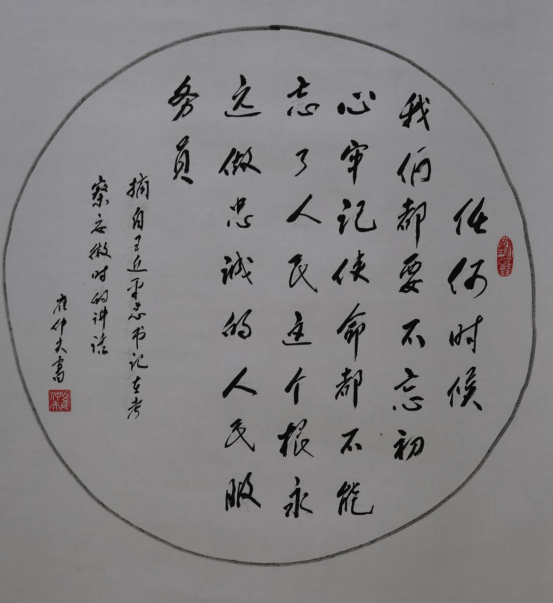 任何时候
我们都要不忘初
心牢记使命都不能
忘了人民这个根永
远做忠诚的人民服
务员
摘自习近平总书记在考
察安徽时的讲话
仲夫书